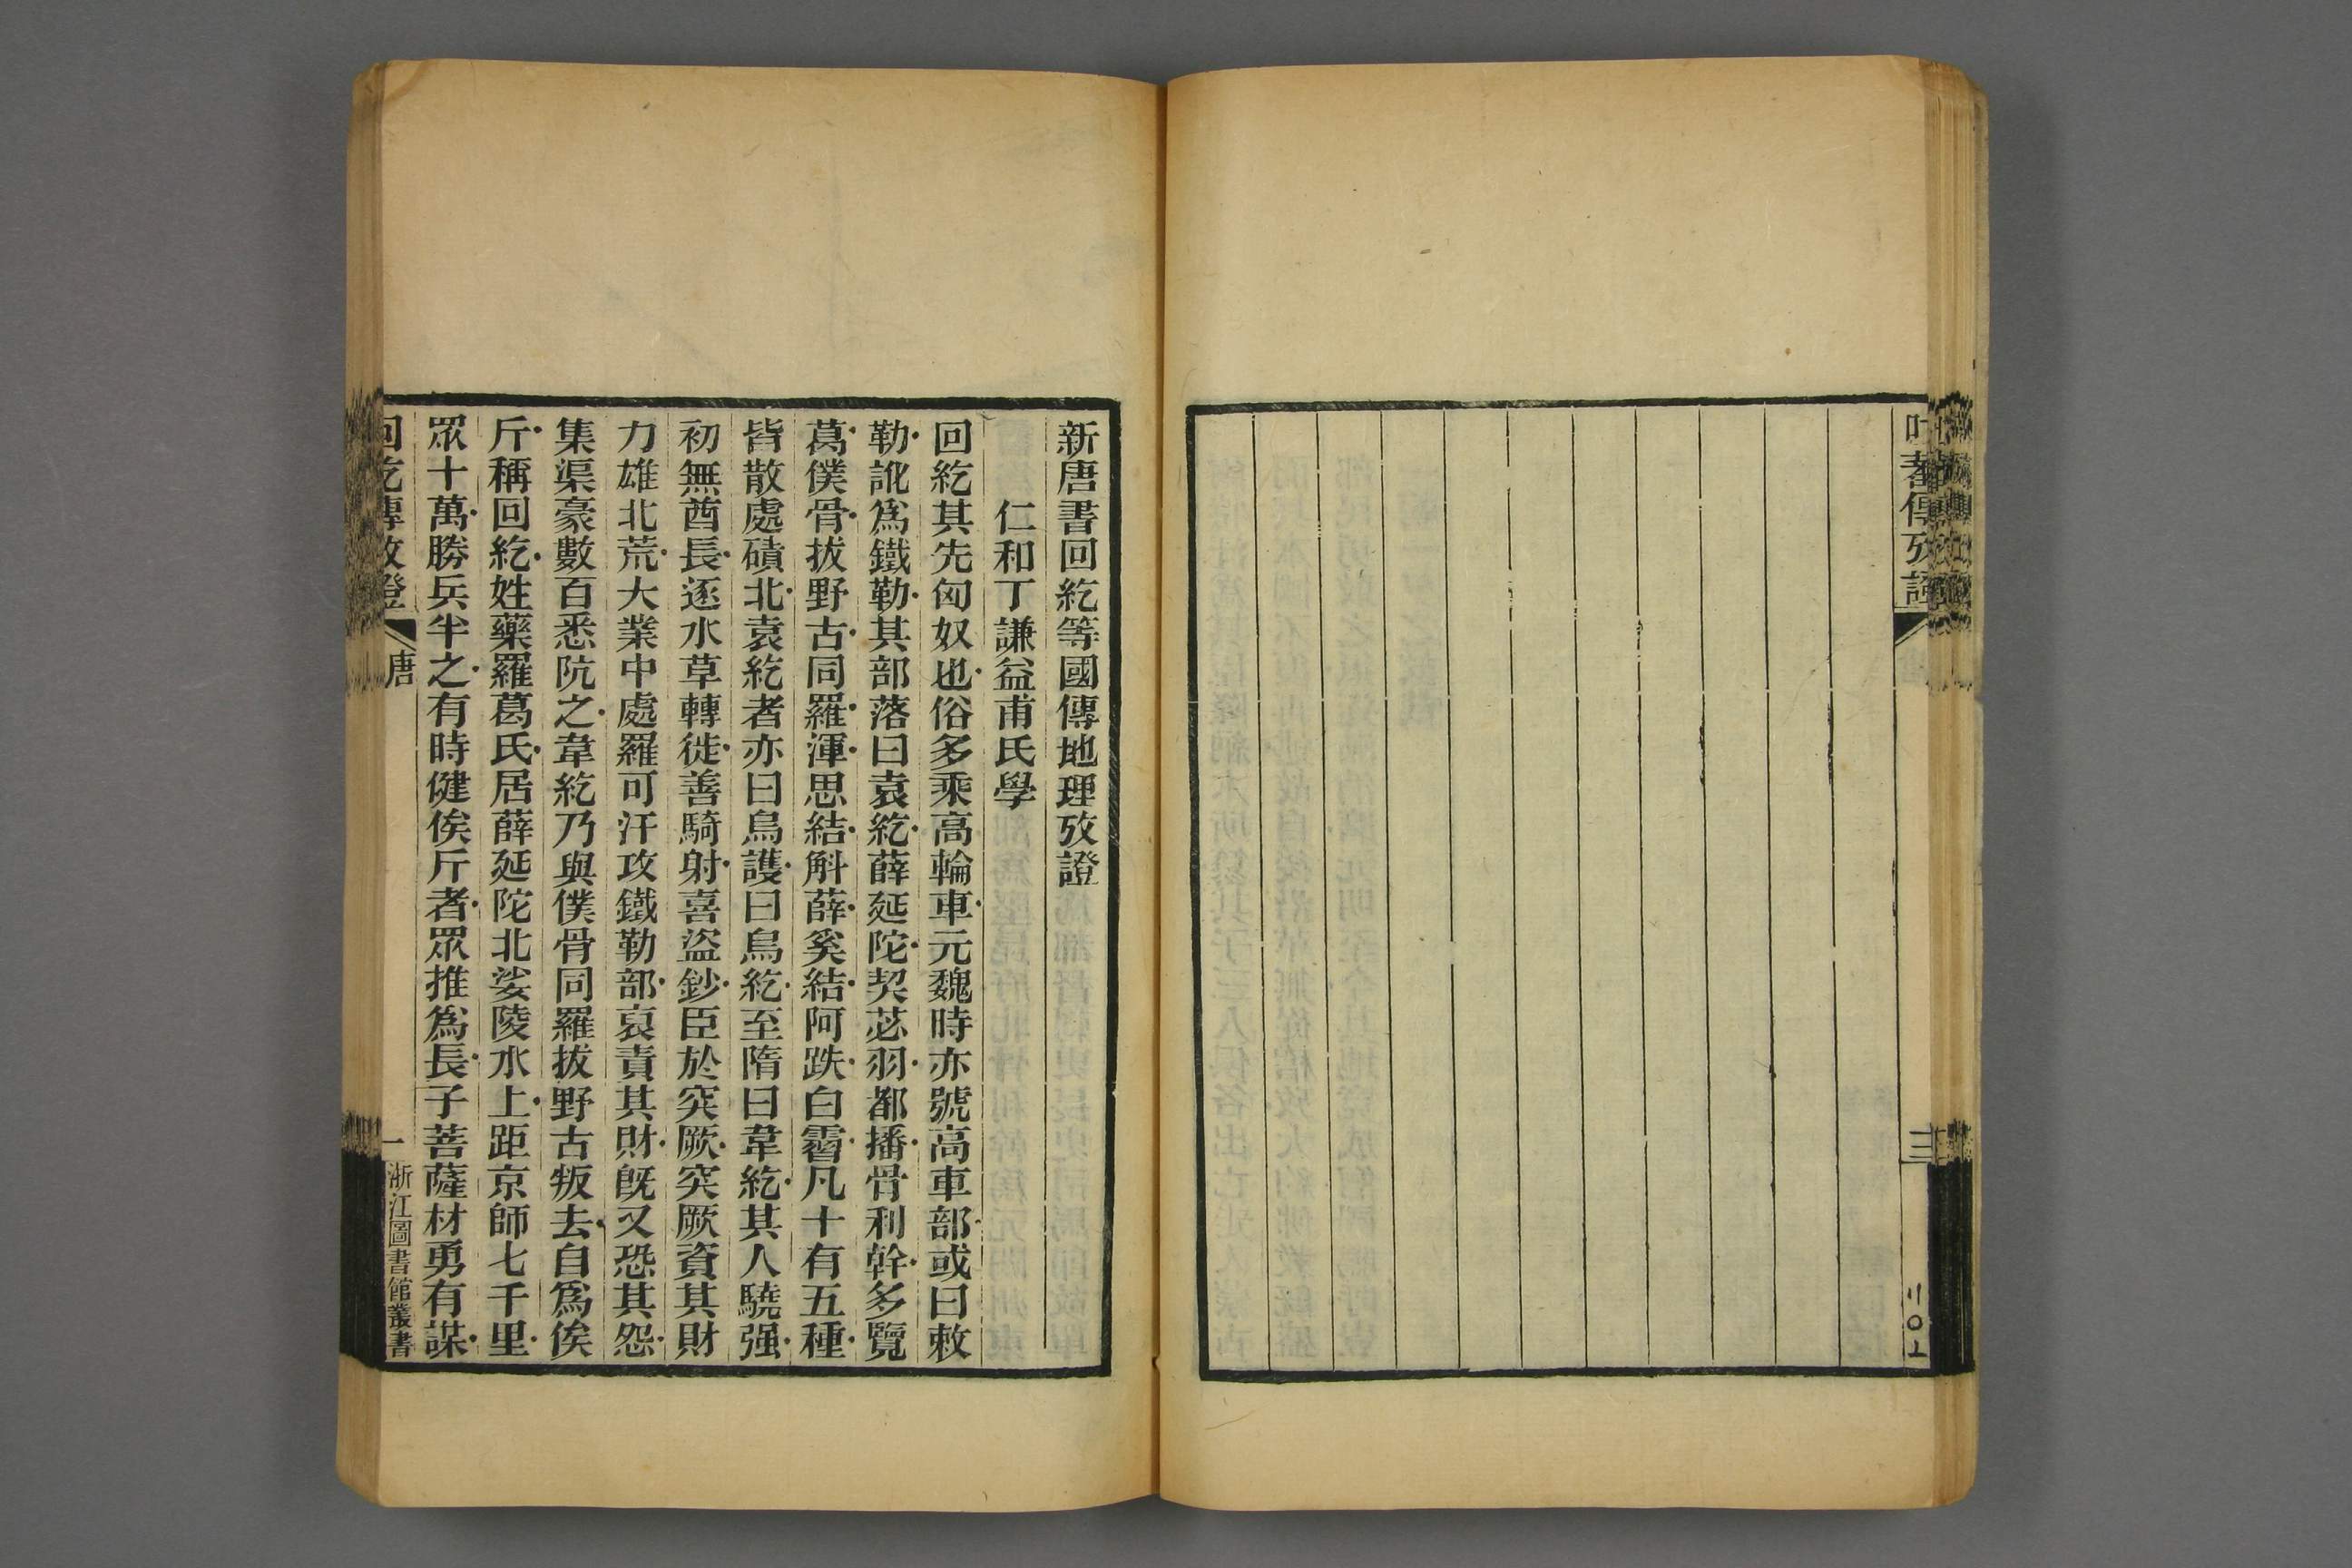 吐蕃傳攷證
三
川〇上
新唐書回紇等國傳地理攷證
仁和丁謙益甫氏學
回紇其先匈奴也俗多乘高輪車元魏時亦號高車部或曰敕
勒訛爲鐵勒其部落曰袁紇薛延陀契苾羽都播骨利幹多覽
葛僕骨拔野古同羅渾思結斛薛奚結阿跌白霫凡十有五種
皆散處磧北袁紇者亦曰烏護曰烏紇至隋曰韋紇其人驍强
初無酋長逐水草轉徙善騎射喜盜鈔臣於突厥突厥資其財
力雄北荒大業中處羅可汗攻鐵勒部裒責其財旣又恐其怨
集渠豪數百悉阬之韋紇乃與僕骨同羅拔野古叛去自爲俟
斤稱回紇姓藥羅葛氏居薛延陀北娑陵水上距京師七千里
眾十萬勝兵半之有時健俟斤者眾推爲長子菩薩材勇有謀
回紇傳攷證
唐
一
浙江圖書館叢書